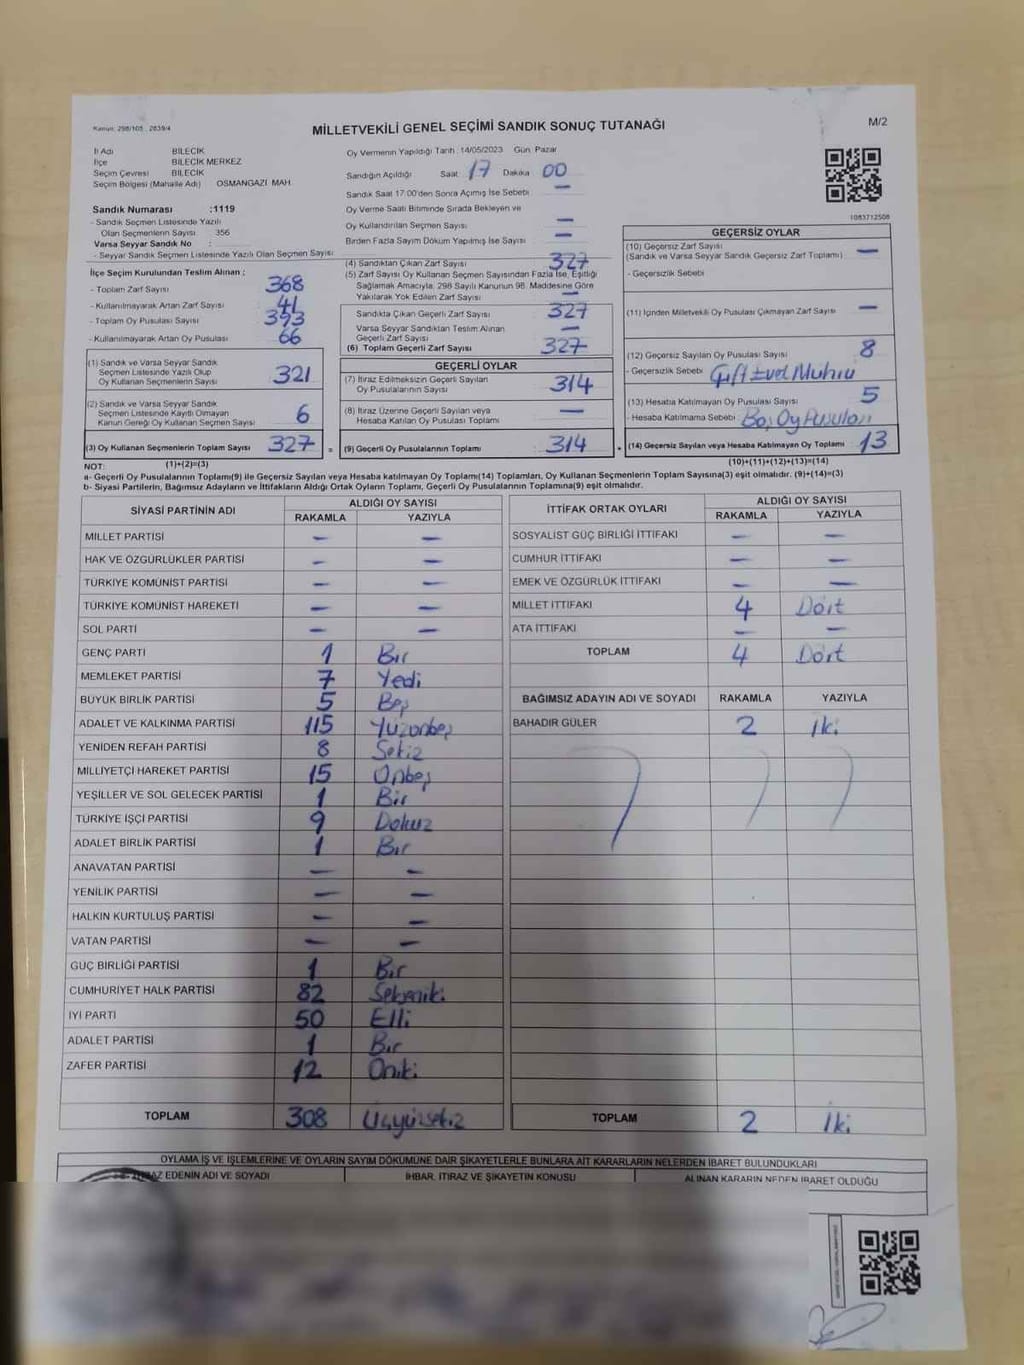 Kanun: 298/105 , 2839/4
MİLLETVEKİLİ GENEL SEÇİMİ SANDIK SONUÇ TUTANAĞI
M/2
İl Adı BİLECİK
İlçe BİLECİK MERKEZ
Seçim Çevresi BİLECİK
Seçim Bölgesi (Mahalle Adı) OSMANGAZİ MAH.
Sandık Numarası :1119
- Sandık Seçmen Listesinde Yazılı
Olan Seçmenlerin Sayısı 356
Varsa Seyyar Sandık No :
- Seyyar Sandık Seçmen Listesinde Yazılı Olan Seçmen Sayısı
İlçe Seçim Kurulundan Teslim Alınan ;
- Toplam Zarf Sayısı 368
- Kullanılmayarak Artan Zarf Sayısı 41
- Toplam Oy Pusulası Sayısı 393
- Kullanılmayarak Artan Oy Pusulası 66
(1) Sandık ve Varsa Seyyar Sandık
Seçmen Listesinde Yazılı Olup
Oy Kullanan Seçmenlerin Sayısı 321
(2) Sandık ve Varsa Seyyar Sandık
Seçmen Listesinde Kayıtlı Olmayan
Kanun Gereği Oy Kullanan Seçmen Sayısı 6
(3) Oy Kullanan Seçmenlerin Toplam Sayısı 327 =
Oy Vermenin Yapıldığı Tarih : 14/05/2023 Gün: Pazar
Sandığın Açıldığı Saat: 17 Dakika 00
Sandık Saat 17:00'den Sonra Açılmış İse Sebebi —
Oy Verme Saati Bitiminde Sırada Bekleyen ve
Oy Kullandırılan Seçmen Sayısı —
Birden Fazla Sayım Döküm Yapılmış İse Sayısı —
(4) Sandıktan Çıkan Zarf Sayısı 327
(5) Zarf Sayısı Oy Kullanan Seçmen Sayısından Fazla İse, Eşitliği
Sağlamak Amacıyla, 298 Sayılı Kanunun 98. Maddesine Göre
Yakılarak Yok Edilen Zarf Sayısı —
Sandıkta Çıkan Geçerli Zarf Sayısı 327
Varsa Seyyar Sandıktan Teslim Alınan
Geçerli Zarf Sayısı —
(6) Toplam Geçerli Zarf Sayısı 327
GEÇERLİ OYLAR
(7) İtiraz Edilmeksizin Geçerli Sayılan
Oy Pusulalarının Sayısı 314
(8) İtiraz Üzerine Geçerli Sayılan veya
Hesaba Katılan Oy Pusulası Toplamı —
(9) Geçerli Oy Pusulalarının Toplamı 314 +
1083712508
GEÇERSİZ OYLAR
(10) Geçersiz Zarf Sayısı
(Sandık ve Varsa Seyyar Sandık Geçersiz Zarf Toplamı) —
- Geçersizlik Sebebi
(11) İçinden Milletvekili Oy Pusulası Çıkmayan Zarf Sayısı —
(12) Geçersiz Sayılan Oy Pusulası Sayısı 8
- Geçersizlik Sebebi Çift Evet Mührü
(13) Hesaba Katılmayan Oy Pusulası Sayısı 5
- Hesaba Katılmama Sebebi Boş Oy Pusulası
(14) Geçersiz Sayılan veya Hesaba Katılmayan Oy Toplamı 13
NOT: (1)+(2)=(3) (10)+(11)+(12)+(13)=(14)
a- Geçerli Oy Pusulalarının Toplamı(9) ile Geçersiz Sayılan veya Hesaba katılmayan Oy Toplamı(14) Toplamları, Oy Kullanan Seçmenlerin Toplam Sayısına(3) eşit olmalıdır. (9)+(14)=(3)
b- Siyasi Partilerin, Bağımsız Adayların ve İttifakların Aldığı Ortak Oyların Toplamı, Geçerli Oy Pusulalarının Toplamına(9) eşit olmalıdır.
SİYASİ PARTİNİN ADI ALDIĞI OY SAYISI
RAKAMLA YAZIYLA
MİLLET PARTİSİ — —
HAK VE ÖZGÜRLÜKLER PARTİSİ — —
TÜRKİYE KOMÜNİST PARTİSİ — —
TÜRKİYE KOMÜNİST HAREKETİ — —
SOL PARTİ — —
GENÇ PARTİ 1 Bir
MEMLEKET PARTİSİ 7 Yedi
BÜYÜK BİRLİK PARTİSİ 5 Beş
ADALET VE KALKINMA PARTİSİ 115 Yüzonbeş
YENİDEN REFAH PARTİSİ 8 Sekiz
MİLLİYETÇİ HAREKET PARTİSİ 15 Onbeş
YEŞİLLER VE SOL GELECEK PARTİSİ 1 Bir
TÜRKİYE İŞÇİ PARTİSİ 9 Dokuz
ADALET BİRLİK PARTİSİ 1 Bir
ANAVATAN PARTİSİ — —
YENİLİK PARTİSİ — —
HALKIN KURTULUŞ PARTİSİ — —
VATAN PARTİSİ — —
GÜÇ BİRLİĞİ PARTİSİ 1 Bir
CUMHURİYET HALK PARTİSİ 82 Sekseniki
İYİ PARTİ 50 Elli
ADALET PARTİSİ 1 Bir
ZAFER PARTİSİ 12 Oniki
TOPLAM 308 Üçyüzsekiz
İTTİFAK ORTAK OYLARI ALDIĞI OY SAYISI
RAKAMLA YAZIYLA
SOSYALİST GÜÇ BİRLİĞİ İTTİFAKI — —
CUMHUR İTTİFAKI — —
EMEK VE ÖZGÜRLÜK İTTİFAKI — —
MİLLET İTTİFAKI 4 Dört
ATA İTTİFAKI — —
TOPLAM 4 Dört
BAĞIMSIZ ADAYIN ADI VE SOYADI RAKAMLA YAZIYLA
BAHADIR GÜLER 2 İki
TOPLAM 2 İki
OYLAMA İŞ VE İŞLEMLERİNE VE OYLARIN SAYIM DÖKÜMÜNE DAİR ŞİKAYETLERLE BUNLARA AİT KARARLARIN NELERDEN İBARET BULUNDUKLARI
EDENİN ADI VE SOYADI İHBAR, İTİRAZ VE ŞİKAYETİN KONUSU ALINAN KARARIN NEDEN İBARET OLDUĞU